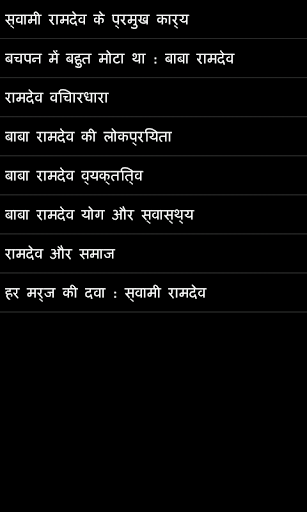 स्वामी रामदेव के प्रमुख कार्य
बचपन में बहुत मोटा था : बाबा रामदेव
रामदेव विचारधारा
बाबा रामदेव की लोकप्रियता
बाबा रामदेव व्यक्तित्व
बाबा रामदेव योग और स्वास्थ्य
रामदेव और समाज
हर मर्ज की दवा : स्वामी रामदेव